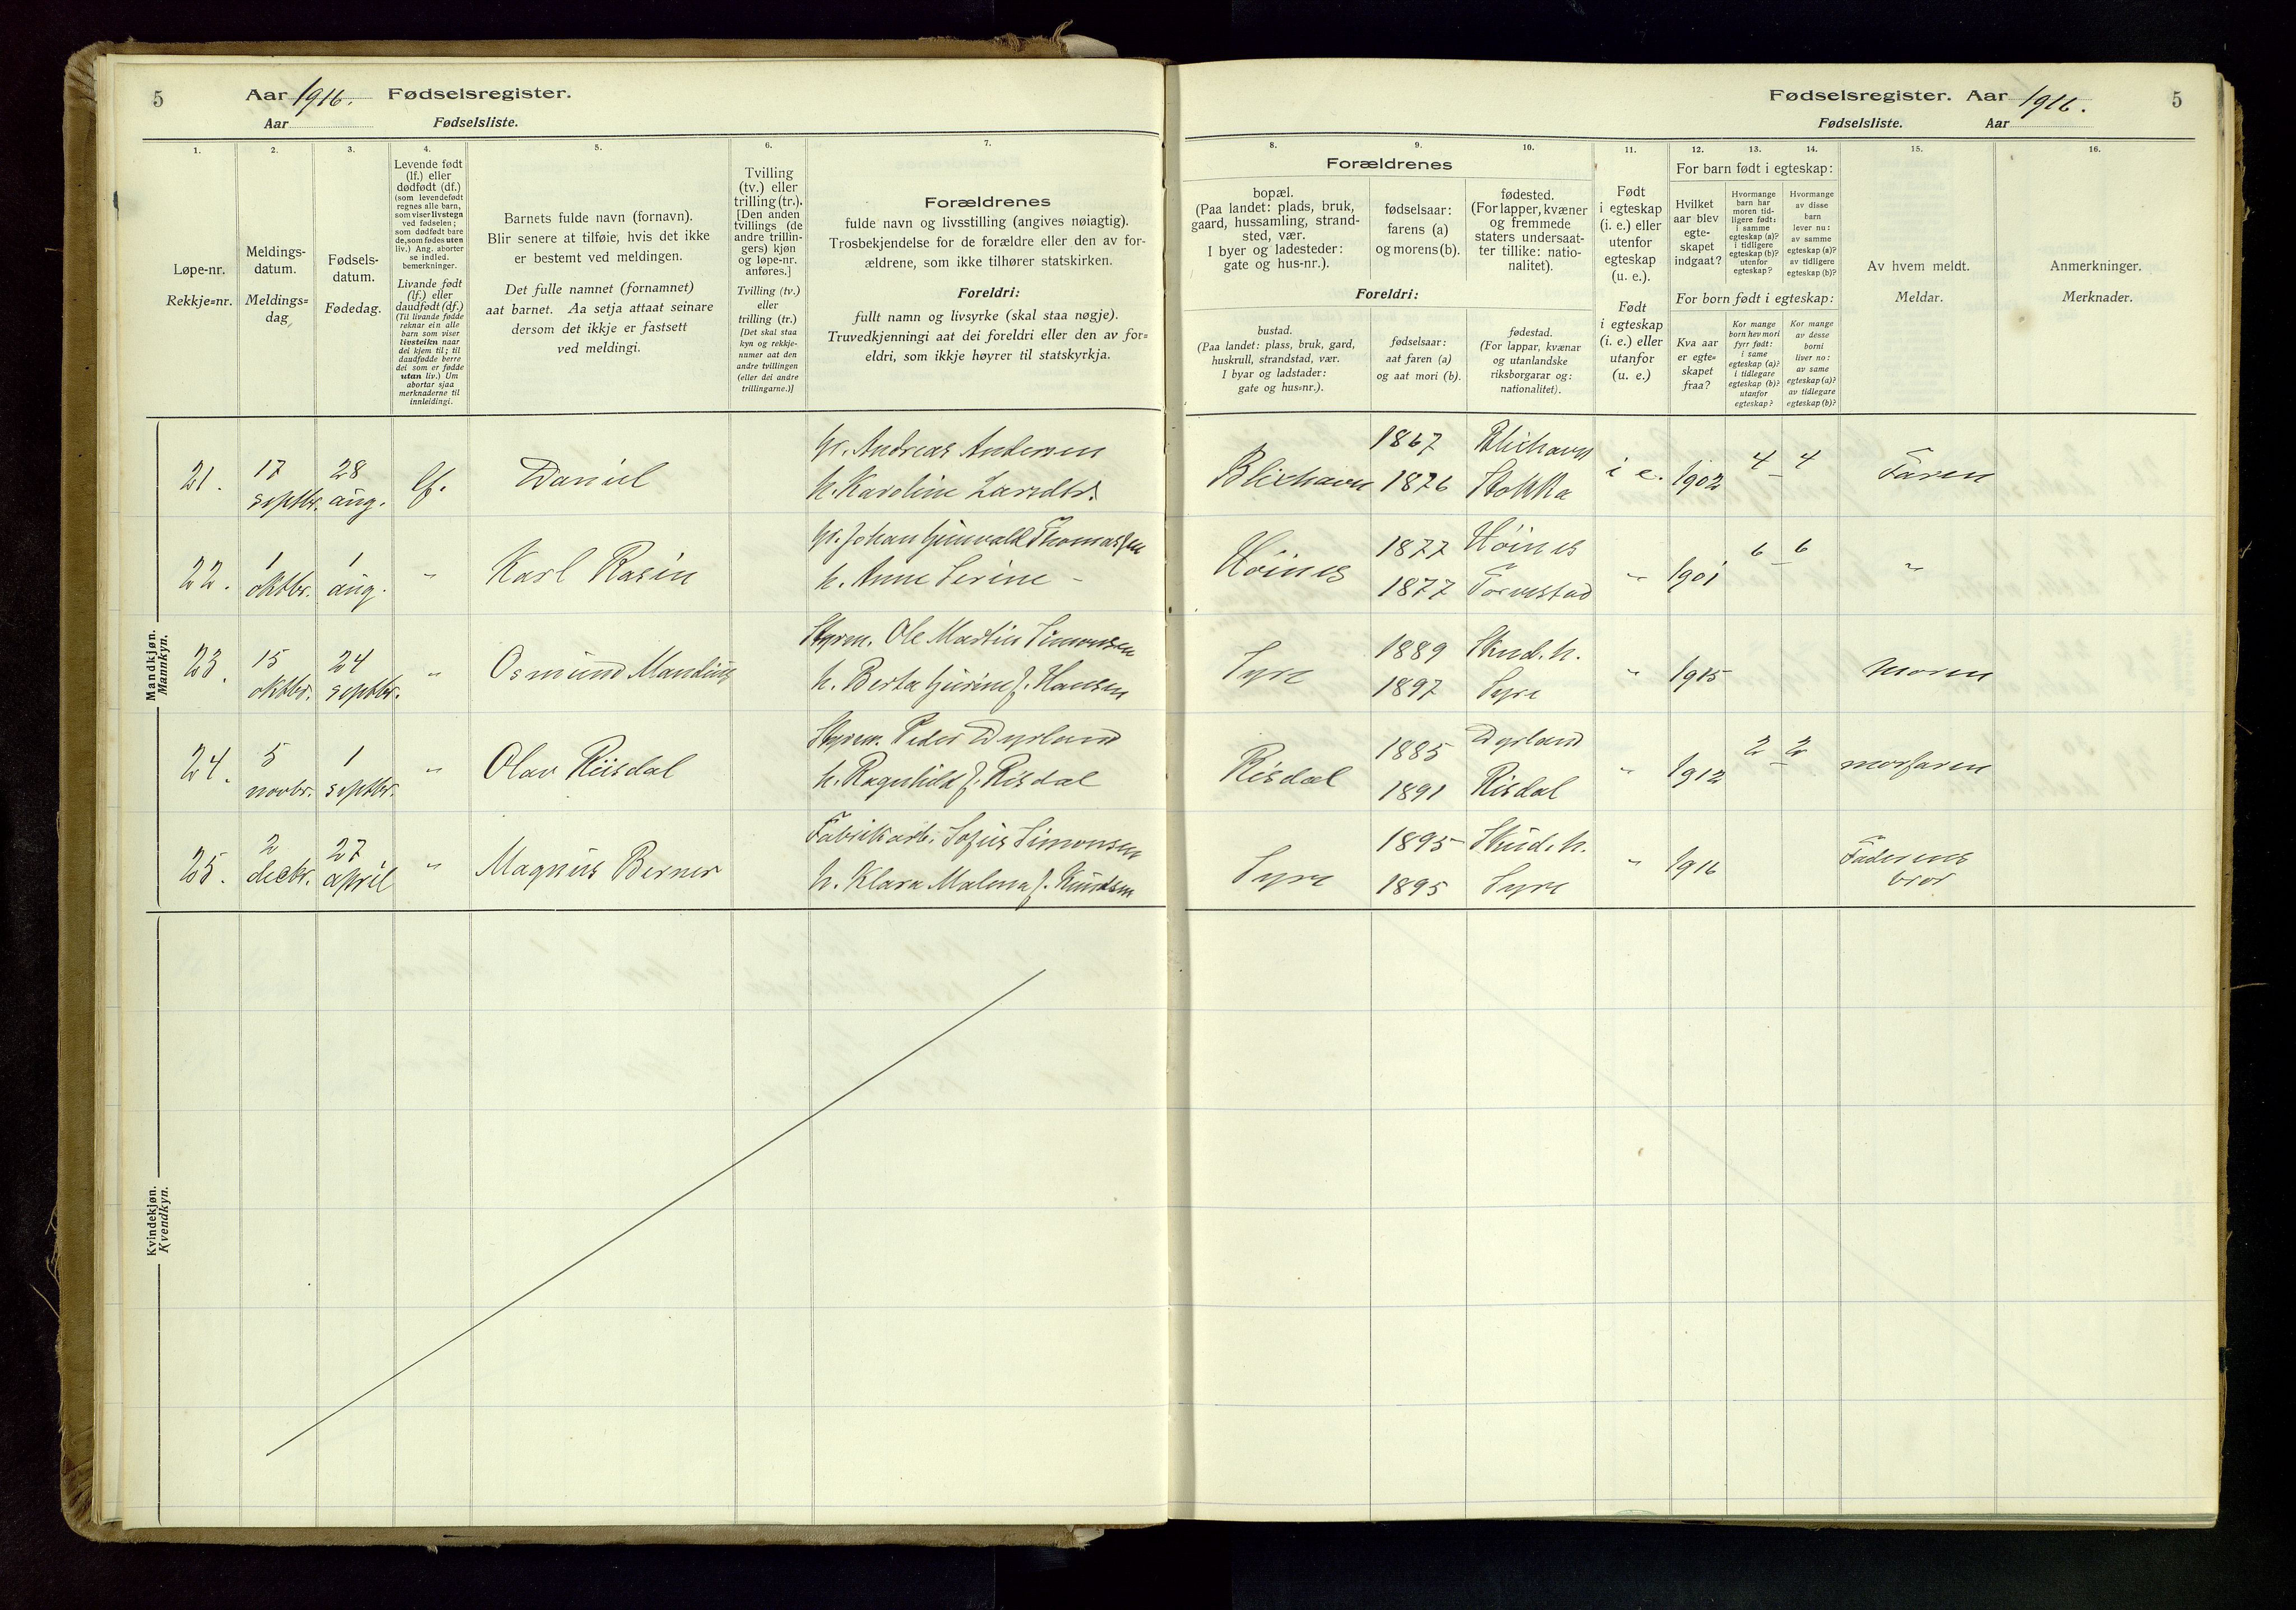 5
Aar 1916. Fødselsregister.
Aar Fødselsliste.
1.
2.
3.
4.
5.
6.
7.
Løpe-nr.
Rekkje=nr.
Meldings-
datum.
Meldings=
dag
Fødsels-
datum.
Fødedag.
Levende født
(lf.) eller
dødfødt (df.)
(som levendefødt
regnes alle barn,
som viser livstegn
ved fødselen;
som dødfødt bare
de, som fødes uten
liv.) Ang. aborter
se indled.
bemerkninger.
Livande født
(lf.) eller
daudfødt (df.)
(Til livande fødde
reknar ein alle
barn som viser
livsteikn naar
dei kjem til; til
daudfødde berre
dei som er fødde
utan liv.) Um
abortar sjaa
merknaderne til
innleidingi.
Barnets fulde navn (fornavn).
Blir senere at tilføie, hvis det ikke
er bestemt ved meldingen.
Det fulle namnet (fornamnet)
aat barnet. Aa setja attaat seinare
dersom det ikkje er fastsett
ved meldingi.
Tvilling
(tv.) eller
trilling (tr.).
[Den anden
tvillings (de
andre trillin-
gers) kjøn
og løpe-nr.
anføres.]
Tvilling (tv.)
eller
trilling (tr.)
[Det skal staa
kyn og rekkje-
numer aat den
andre tvillingen
(eller dei andre
trillingarne.)]
Forældrenes
fulde navn og livsstilling (angives nøiagtig).
Trosbekjendelse for de forældre eller den av for-
ældrene, som ikke tilhører statskirken.
Foreldri:
fullt namn og livsyrke (skal staa nøgje).
Truvedkjenningi aat dei foreldri eller den av for=
eldri, som ikkje høyrer til statskyrkja.
Mandkjøn.
Mannkyn.
21.
17
septbr.
28
aug.
lf.
Daniel
Andreas Andersen
h. Karoline Larsdtr.
22.
1
oktbr.
1
aug.
"
Karl Rasin
Johan Gunvald Thomassen
h. Anne Serine -
23.
15
oktbr.
24
septbr.
"
Osmund Mandius
Styrm. Ole Martin Simonsen
h. Berta Gurine f. Hansen
24.
5
novbr.
1
septbr.
"
Olav Riisdal
Styrm. Peder Dyrland
h. Ragnhild f. Risdal
25.
2
decbr.
27
april
"
Magnus Berner
Fabrikarb. Sofus Simonsen
h. Klara Malena f. Knudsen
Kvindekjøn.
Kvendkyn.
Fødselsregister. Aar 1916.
5
Fødselsliste. Aar
8.
9.
10.
11.
12.
13.
14.
15.
16.
Forældrenes
bopæl.
(Paa landet: plads, bruk,
gaard, hussamling, strand-
sted, vær.
I byer og ladesteder:
gate og hus-nr.).
fødselsaar:
farens (a)
og morens (b).
fødested.
(For lapper, kvæner
og fremmede
staters undersaat-
ter tillike: natio-
nalitet).
Foreldri:
bustad.
(Paa landet: plass, bruk, gard,
huskrull, strandstad, vær.
I byar og ladstader:
gate og hus=nr.).
fødselsaar:
aat faren (a)
og aat mori (b).
fødestad.
(For lappar, kvænar
og utanlandske
riksborgarar og:
nationalitet).
Født
i egteskap
(i. e.) eller
utenfor
egteskap
(u. e.).
Født
i egteskap
(i. e.) eller
utanfor
(u. e.)
For barn født i egteskap:
Hvilket
aar blev
egte-
skapet
indgaat?
Hvormange
barn har
moren tid-
ligere født:
i samme
egteskap (a)?
i tidligere
egteskap (b)?
utenfor
egteskap?
Hvormange
av disse
barn
lever nu:
av samme
egteskap (a)?
av tidligere
egteskap (b)?
For born født i egteskap:
Kva aar
er egte=
skapet
fraa?
Kor mange
born hev mori
fyrr født:
i same
egteskap (a)?
i tidlegare
egteskap (b)?
utanfor
egteskap?
Kor mange
av desse
borni
liver no:
av same
egteskap (a)?
av tidlegare
egteskap (b)?
Av hvem meldt.
Meldar.
Anmerkninger.
Merknader.
Blixhavn
1867
1876
Blixhavn
Stokka
i e.
1902
4 - 4
Faren
Höines
1877
1877
Höines
Tornestad
"
1901
6 - 6
"
Syre
1889
1897
Skud.h.
Syre
"
1915
Moren
Risdal
1885
1891
Dyrland
Risdal
"
1912
2 - 2
morfaren
Syre
1895
1895
Skud.h.
Syre
"
1916
Faderens
bror